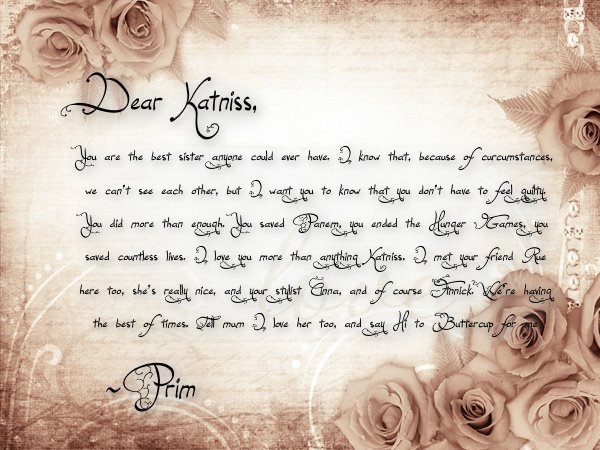 Dear Katniss,
You are the best sister anyone could ever have. I know that, because of curcumstances,
we can't see each other, but I want you to know that you don't have to feel guilty.
You did more than enough. You saved Panem, you ended the Hunger Games, you
saved countless lives. I love you more than anything Katniss. I met your friend Rue
here too, she's really nice, and your stylist Cinna, and of course Finnick. We're having
the best of times. Tell mum I love her too, and say Hi to Buttercup for me
~Prim